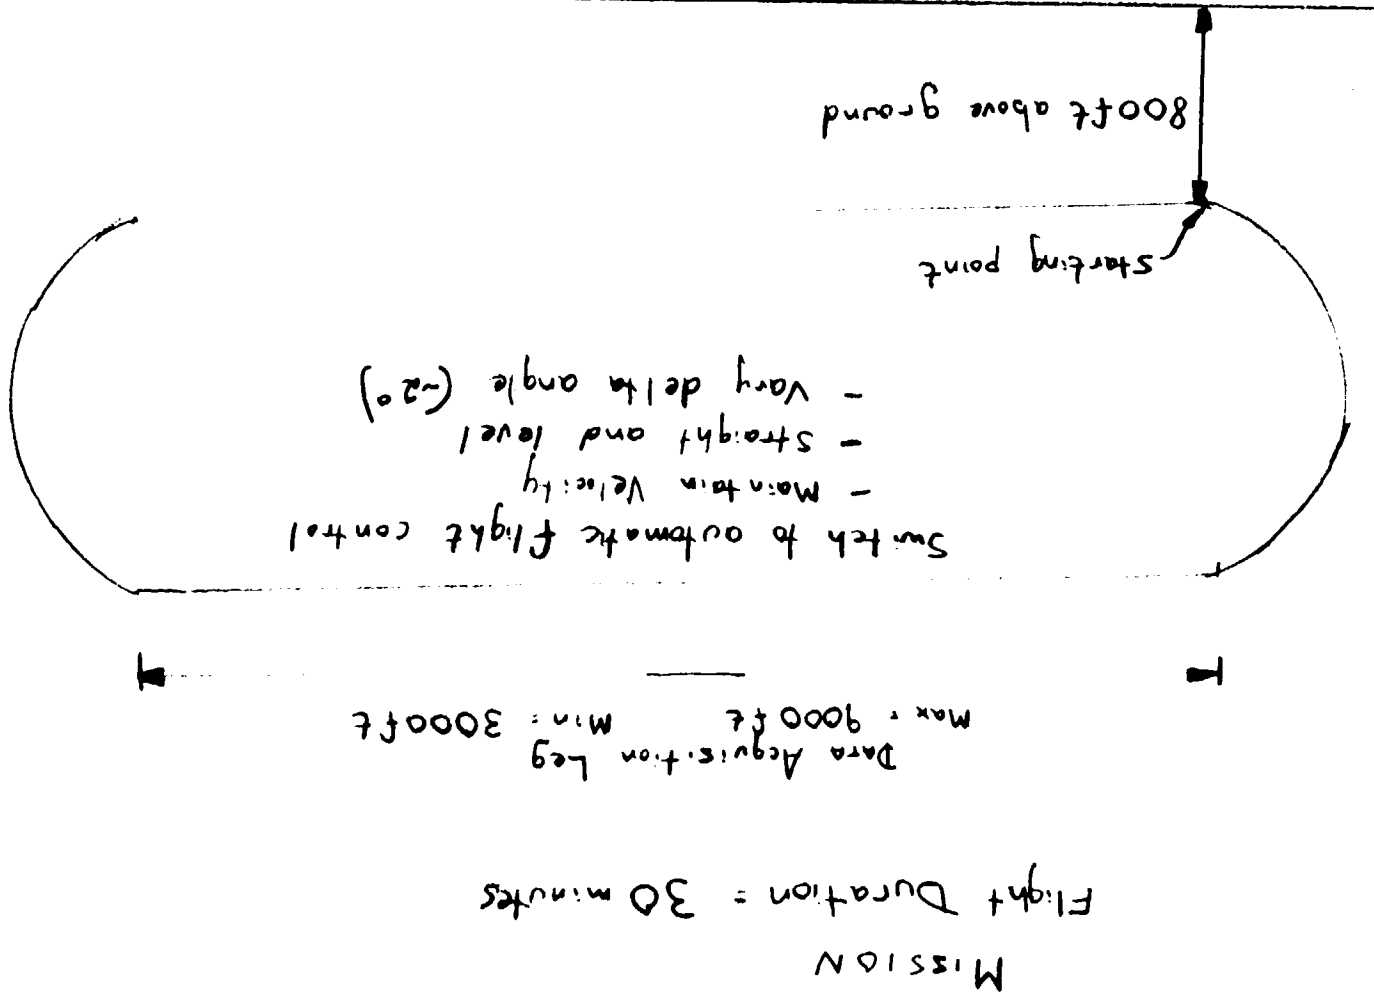 MISSION
Flight Duration = 30 minutes
Data Acquisition Leg
Max = 9000 ft Min = 3000 ft
Switch to automatic flight control
- Maintain Velocity
- Straight and level
- Vary delta angle (~2°)
Starting point
800 ft above ground